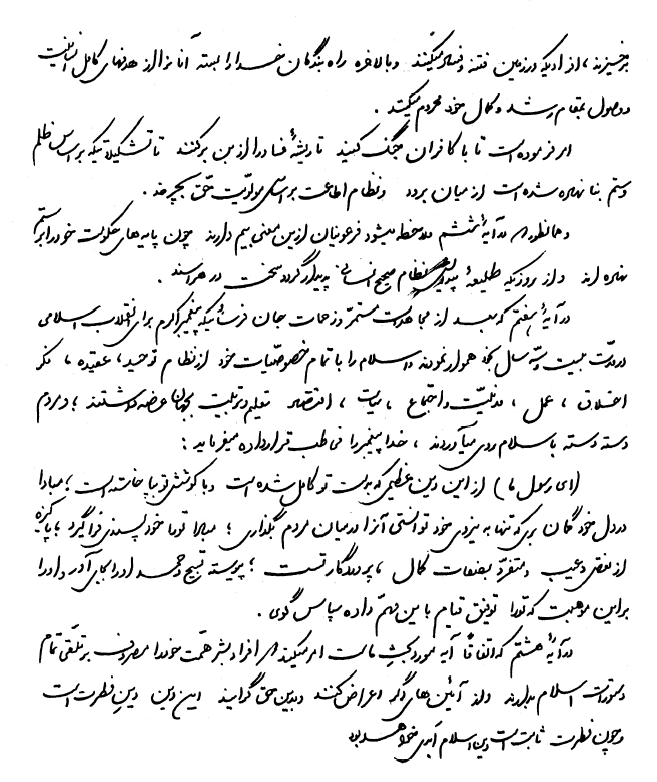 برخیزند، از اینکه در زمین فتنه و فساد میکنند وبالاخره راه بندگان خدا را بسته آنانرا از هدفهای کامل انسانیت
و وصول بمقام رشد و کمال خود محروم میکنند .
امر فرموده است تا با کافران جنگ کنید تا ریشهٔ فساد را از زمین برکنند تا تشکیلاتیکه بر اساس ظلم
وستم بنا نهاده شده است از میان برود ونظام اطاعت بر اساس مولویّت حقّ بچرخد .
وهمانطور در آیهٔ ششم ملاحظه میشود فرعونیان ازین معنی بیم دارند چون پایه های حکومت خود را بر ستم
نهاده اند و از روزیکه طلیعهٔ نظام صحیح انسانی پدیدار گردد سخت در هراسند .
در آیهٔ هفتم که بعد از مجاهدات مستمرّ و زحمات جان فرسائیکه پیغمبر اکرم برای انقلاب اسلامی
در مدّت بیست وسه سال بخود هموار نمودند و اسلام را با تمام خصوصّیات خود از نظام توحید، عقیده ، فکر
اخلاق ، عمل ، مدنیّت و اجتماع ، سیاست ، اقتصاد تعلیم و تربیت بجهان عرضه داشتند ؛ و مردم
دسته دسته باسلام روی میآوردند ، خدا پیغمبر را مخاطب قرار داده میفرماید :
(ای رسول ما) از این دین عظیمی که بدست تو کامل شده است و با کوشش تو بپا خاسته است ؛ مبادا
در دل خود گمان بری که تنها به نیروی خود توانستی آنرا در میان مردم بگذاری ؛ مبادا تو را خود پسندی فرا گیرد ؛ پاکیزه
از نقص و عیب و متفرّد بصفات کمال ، پروردگار تست ؛ پیوسته تسبیح وحمد او را بجای آور و او را
بر این موهبت که تو را توفیق قیام باین مهمّ داده سپاس گوی .
در آیهٔ هشتم که اتفاقاً آیه مورد بحث ماست امر میکند ای افراد بشر همّت خود را مصروف بر تلقّی تمام
دستورات اسلام بدارید و از آئین های دگر اعراض کنند و بدین حق گرایند این دین دینِ فطرت است
و چون فطرت ثابت است دین اسلام ابدی خواهد بود